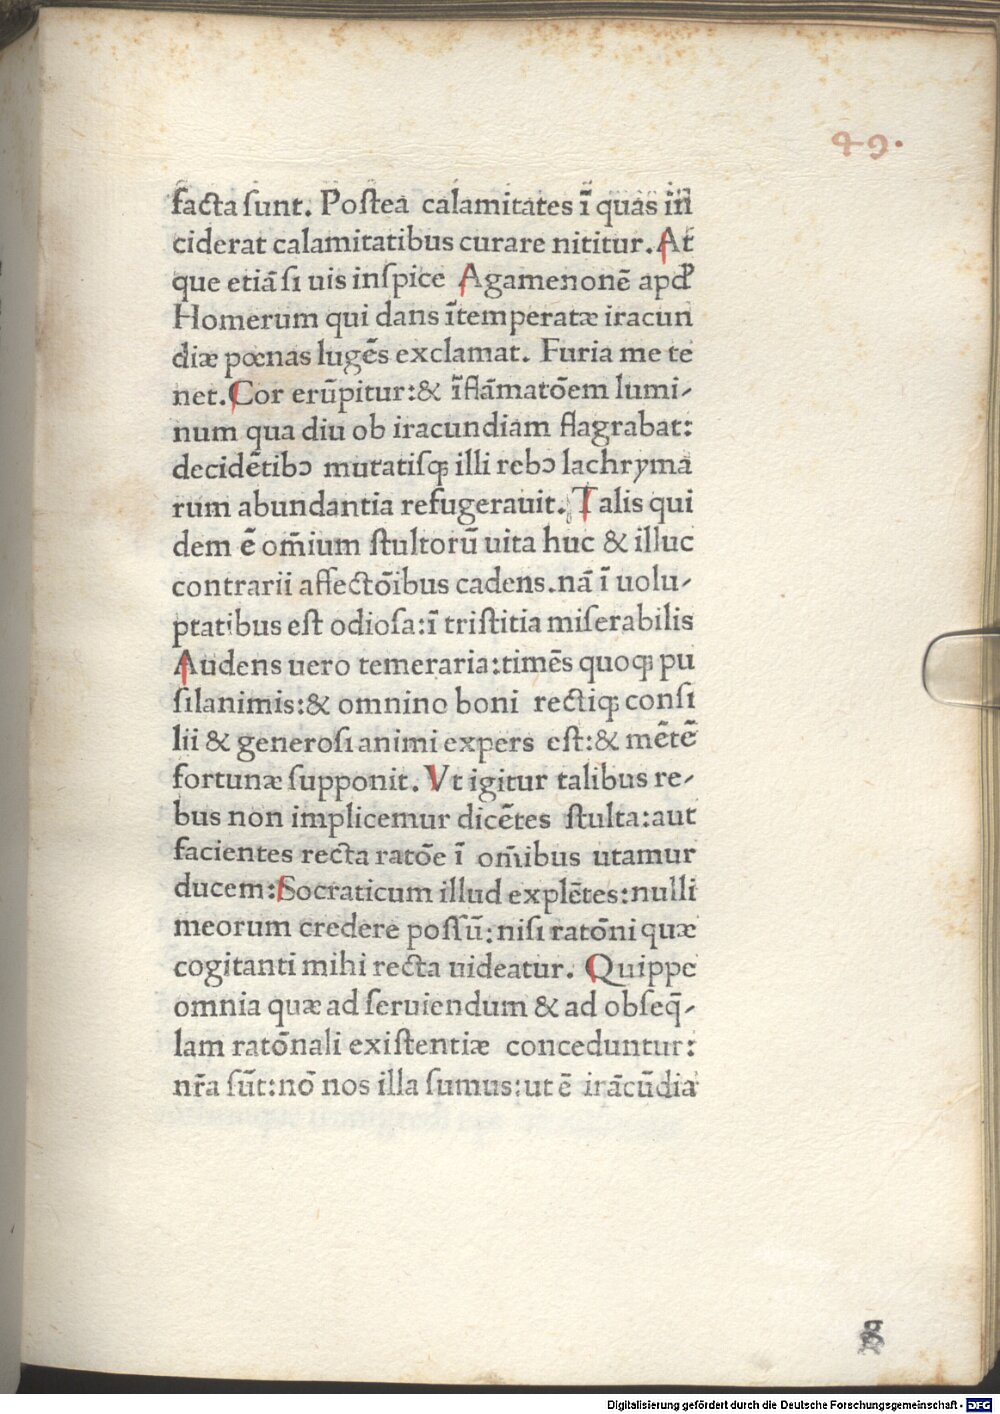 49.
facta sunt. Postea calamitates ī quas in
ciderat calamitatibus curare nititur. At
que etiā si uis inspice Agamenonē apđ
Homerum qui dans ītemperatæ iracun
diæ pœnas lugēs exclamat. Furia me te
net. Cor erūpitur:& īflāmatōem lumi-
num qua diu ob iracundiam flagrabat:
decidētibꝯ mutatisqꝫ illi rebꝯ lachryma
rum abundantia refugerauit. Talis qui
dem ē om̄ium stultorū uita huc & illuc
contrarii affectōibus cadens. nā ī uolu-
ptatibus est odiosa: ī tristitia miserabilis
Audens uero temeraria: timēs quoqꝫ pu
silanimis:& omnino boni rectiqꝫ consi
lii & generosi animi expers est:& mētē
fortunæ supponit. Vt igitur talibus re-
bus non implicemur dicētes stulta: aut
facientes recta ratōe ī om̄ibus utamur
ducem: Socraticum illud explētes: nulli
meorum credere possū: nisi ratōni quæ
cogitanti mihi recta uideatur. Quippe
omnia quæ ad seruiendum & ad obseq̄-
lam ratōnali existentiæ conceduntur:
nr̄a sūt: nō nos illa sumus: ut ē irācūdia
g
Digitalisierung gefördert durch die Deutsche Forschungsgemeinschaft - DFG